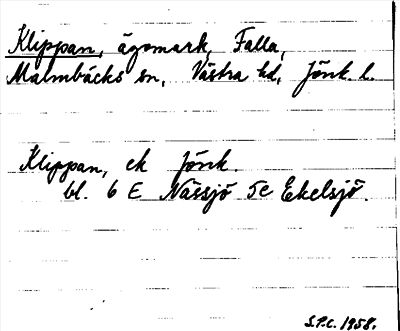 Klippan, ägomark, Falla,
Malmbäcks sn, Västra hd, Jönk. l.
Klippan, ek Jönk.
bl. 6 E Nässjö 5e Ekelsjö.
S.P.C. 1958.